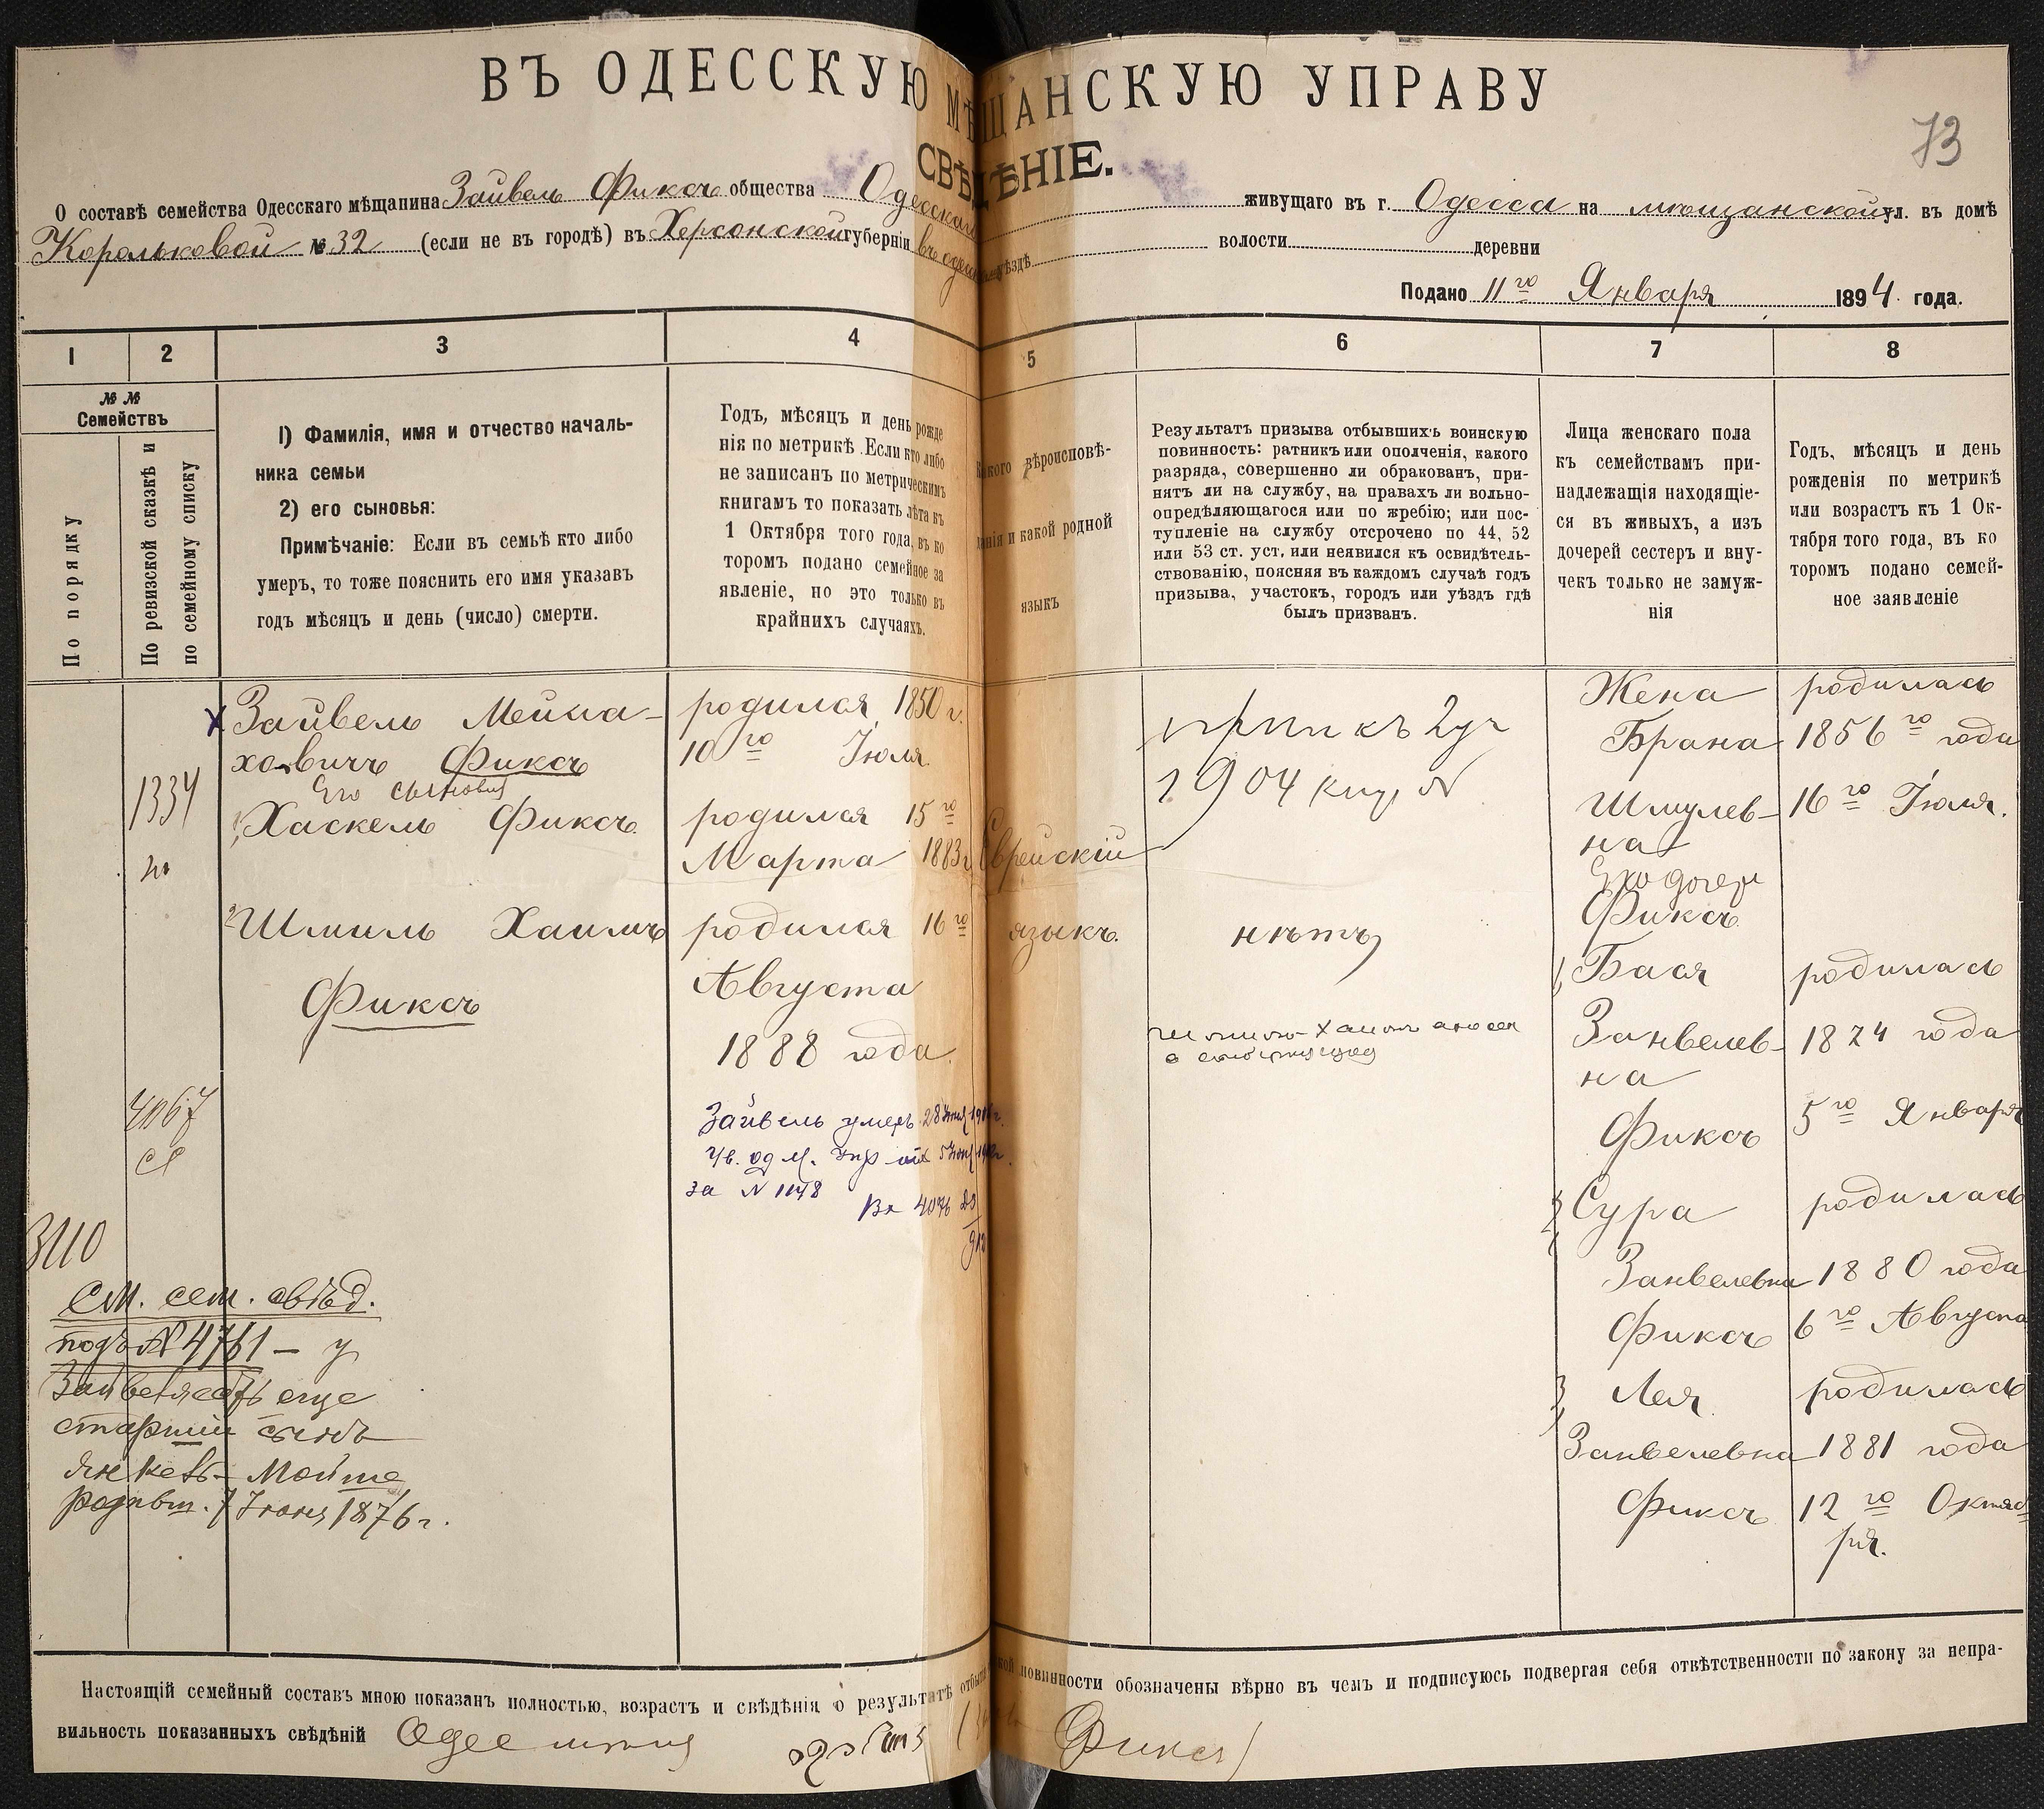 ВЪ ОДЕССКУЮ МѢЩАНСКУЮ УПРАВУ
73
СВѢДѢНІЕ.
О составѣ семейства Одесскаго мѣщанина Зайвель Фиксъ общества Одесскаго живущаго въ г. Одесса на мѣщанской ул. въ домѣ
Корольковой № 32 (если не въ городѣ) въ Херсонской губерніи въ уѣздѣ волости деревни
Подано 11го Января 1894 года.
1 2 3 4 5 6 7 8
№ № Семействъ
По порядку
По ревизской сказкѣ и
по семейному списку
1) Фамилія, имя и отчество началь-
ника семьи
2) его сыновья:
Примѣчаніе: Если въ семьѣ кто либо
умеръ, то тоже пояснить его имя указавъ
годъ мѣсяцъ и день (число) смерти.
Годъ, мѣсяцъ и день рожде
нія по метрикѣ. Если кто либо
не записанъ по метрическимъ
книгамъ то показать лѣта къ
1 Октября того года, въ ко
торомъ подано семейное за
явленіе, но это только въ
крайнихъ случаяхъ.
Какого вѣроисповѣ-
данія и какой родной
языкъ
Результатъ призыва отбывшихъ воинскую
повинность: ратникъ или ополченія, какого
разряда, совершенно ли обракованъ, при-
нятъ ли на службу, на правахъ ли вольно-
опредѣляющагося или по жребію; или пос-
тупленіе на службу отсрочено по 44, 52
или 53 ст. уст. или неявился къ освидѣтель-
ствованію, поясняя въ каждомъ случаѣ годъ
призыва, участокъ, городъ или уѣздъ гдѣ
былъ призванъ.
Лица женскаго пола
къ семействамъ при-
надлежащія находящіе-
ся въ живыхъ, а изъ
дочерей сестеръ и вну-
чекъ только не замуж-
нія
Годъ, мѣсяцъ и день
рожденія по метрикѣ
или возрастъ къ 1 Ок-
тября того года, въ ко
торомъ подано семей-
ное заявленіе
1334
Зайвель Мейна-
ховичъ Фиксъ
Его сыновья
1, Хаскель Фиксъ
2, Шмиль Хаимъ
Фиксъ
родился 1850 г.
10го Іюля.
родился 15го
Марта 1883 г.
родился 16го
Августа
1888 года.
Зайвель умеръ 28
за N 1148
Еврейскій
языкъ.
къ 2 уч
1904
нѣтъ
Жена
Брана
Шмулев-
на
Его дочери
Фиксъ
1, Бася
Занвелев-
на
Фиксъ
2, Сура
Занвелевна
Фиксъ
3, Лея
Занвелевна
Фиксъ
родилась
1856го года
16го Іюля.
родилась
1874 года
5го Января
родилась
1880 года
6го Августа
родилась
1881 года
12го Октяб-
ря.
4067
3110
См. сем. свѣд.
подъ N 4761 - у
Зайвеля есть еще
старшій сынъ
Янкель-Мойше
родивш. 7 Іюня 1876 г.
Настоящій семейный составъ мною показанъ полностью, возрастъ и свѣдѣнія о результатѣ отбытія воинской повинности обозначены вѣрно въ чемъ и подписуюсь подвергая себя отвѣтственности по закону за непра-
вильность показанныхъ свѣдѣній
Фиксъ